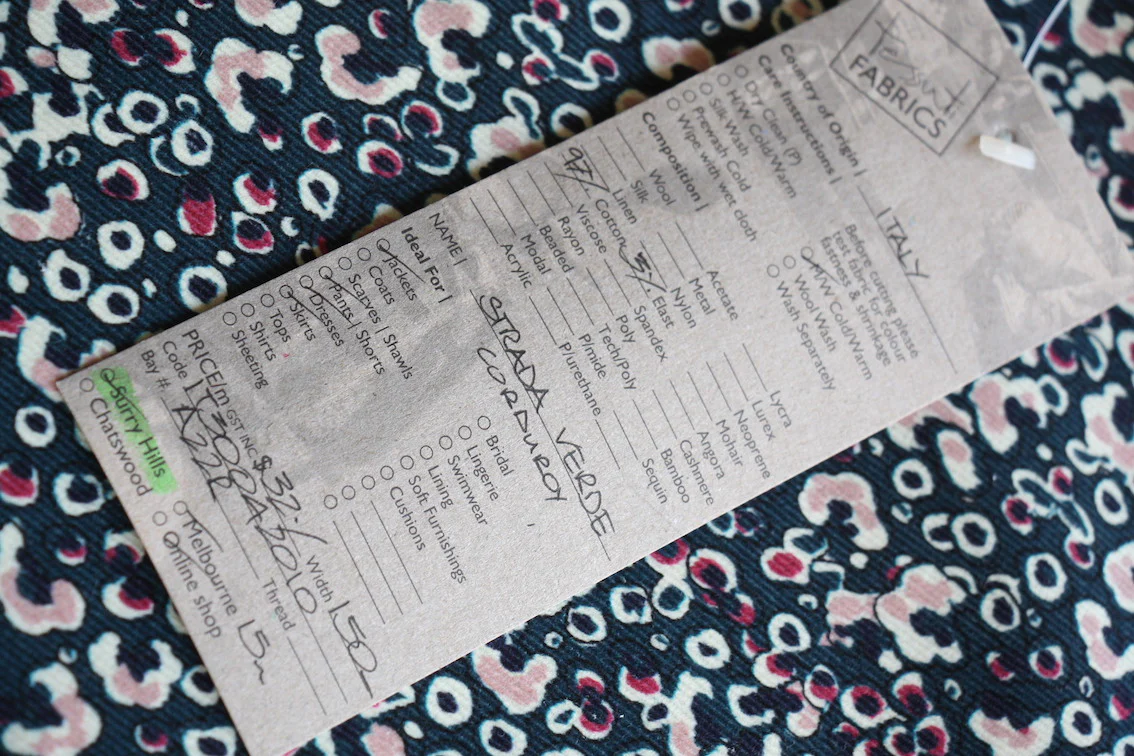 FABRICS
Country of Origin | ITALY
Care Instructions |
Dry Clean (P)
H/W Cold/Warm
Silk Wash
Prewash Cold
Wipe with wet cloth
Before cutting please
test fabric for colour
fastness & shrinkage
M/W Cold/Warm
Wool Wash
Wash Separately
Composition |
Wool
Silk
Linen
97% Cotton
Viscose
Rayon
Beaded
Modal
Acrylic
Acetate
Metal
Nylon
3% Elast
Spandex
Poly
Tech/Poly
P/mide
P/urethane
Lycra
Lurex
Neoprene
Mohair
Angora
Cashmere
Bamboo
Sequin
NAME | STRADA VERDE
CORDUROY
Ideal For |
Jackets
Coats
Scarves | Shawls
Pants | Shorts
Dresses
Skirts
Tops
Shirts
Sheeting
Bridal
Lingerie
Swimwear
Lining
Soft Furnishings
Cushions
PRICE/m GST INC $ 32.- Width 150
Code
Thread
Bay # A22R
Surry Hills
Chatswood
Melbourne 15m
Online shop